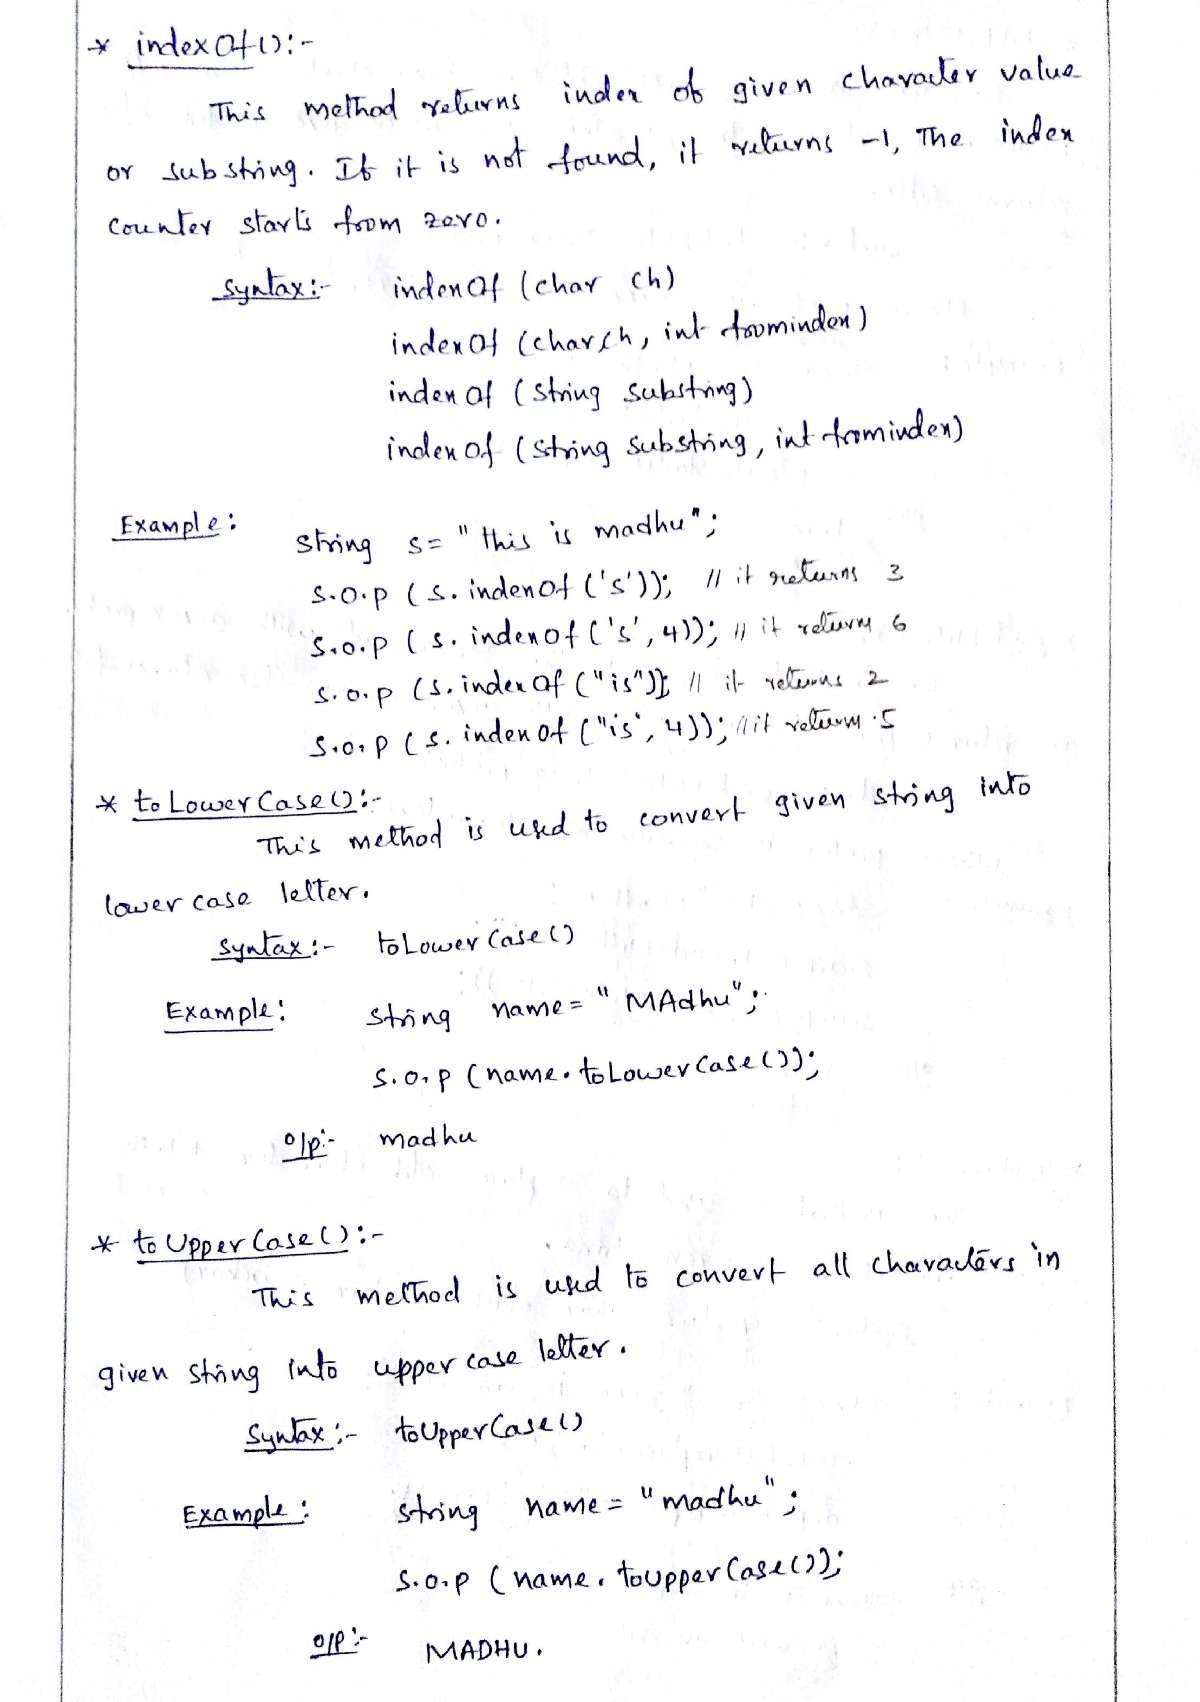 * indexOf():-
This method returns index of given character value
or substring. If it is not found, it returns -1, The index
counter starts from zero.
Syntax:- indexOf (char ch)
indexOf (char ch, int fromindex)
indexOf (String substring)
indexOf (String substring, int fromindex)
Example: String s= "this is madhu";
S.O.P (s.indexOf ('s')); // it returns 3
S.O.P (s.indexOf ('s', 4)); // it returns 6
S.O.P (s.indexOf ("is")); // it returns 2
S.O.P (s.indexOf ("is", 4)); // it returns 5
* toLowerCase():-
This method is used to convert given string into
lower case letter.
Syntax:- toLowerCase()
Example: String name = "MAdhu";
S.O.P (name.toLowerCase());
o/p:- madhu
* toUpperCase():-
This method is used to convert all characters in
given string into upper case letter.
Syntax:- toUpperCase()
Example: String name = "madhu";
S.O.P (name.toUpperCase());
o/p:- MADHU.